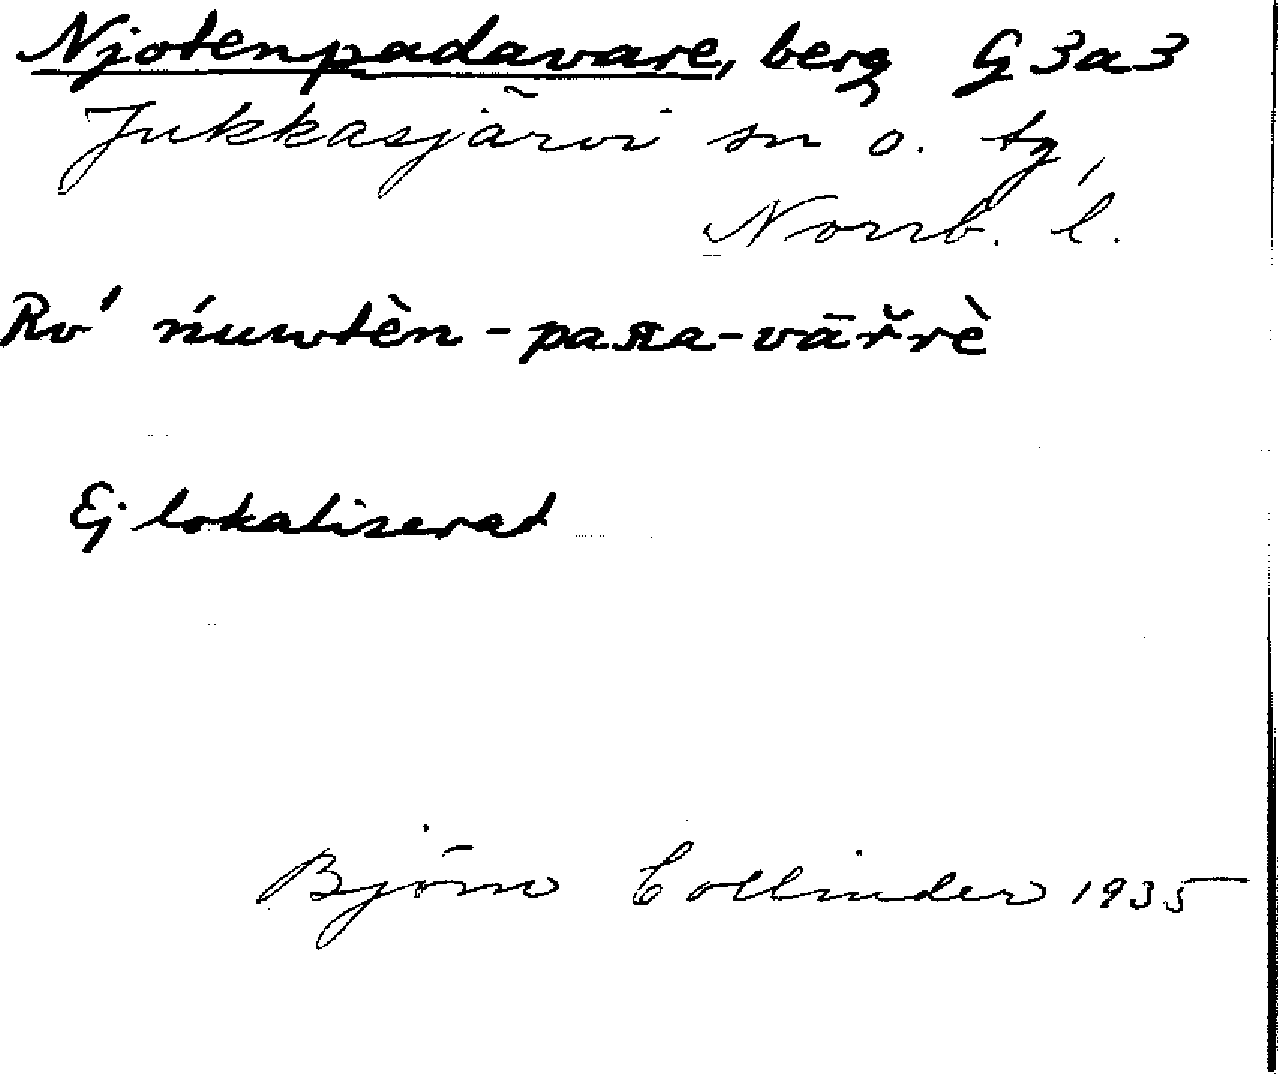 Njotenpadavare, berg G3a3
Jukkasjärvi sn o. tg,
Norrb. l.
Ro' ńuwtèn - paᴨa - vār̆rè
Ej lokaliserat
Björn Collinder 1935